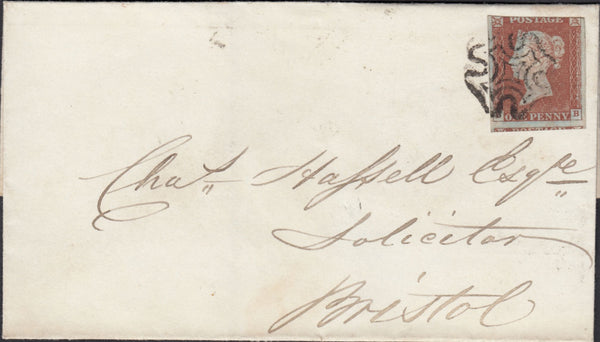 POSTAGE
ONE PENNY B
Chas. Hassell Esqre
Solicitor
Bristol